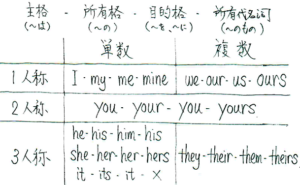 主格 - 所有格 - 目的格 - 所有代名詞
(〜は) (〜の) (〜を、〜に) (〜のもの)
単数 複数
1人称 I - my - me - mine we - our - us - ours
2人称 you - your - you - yours
he - his - him - his
3人称 she - her - her - hers they - their - them - theirs
it - its - it - ×